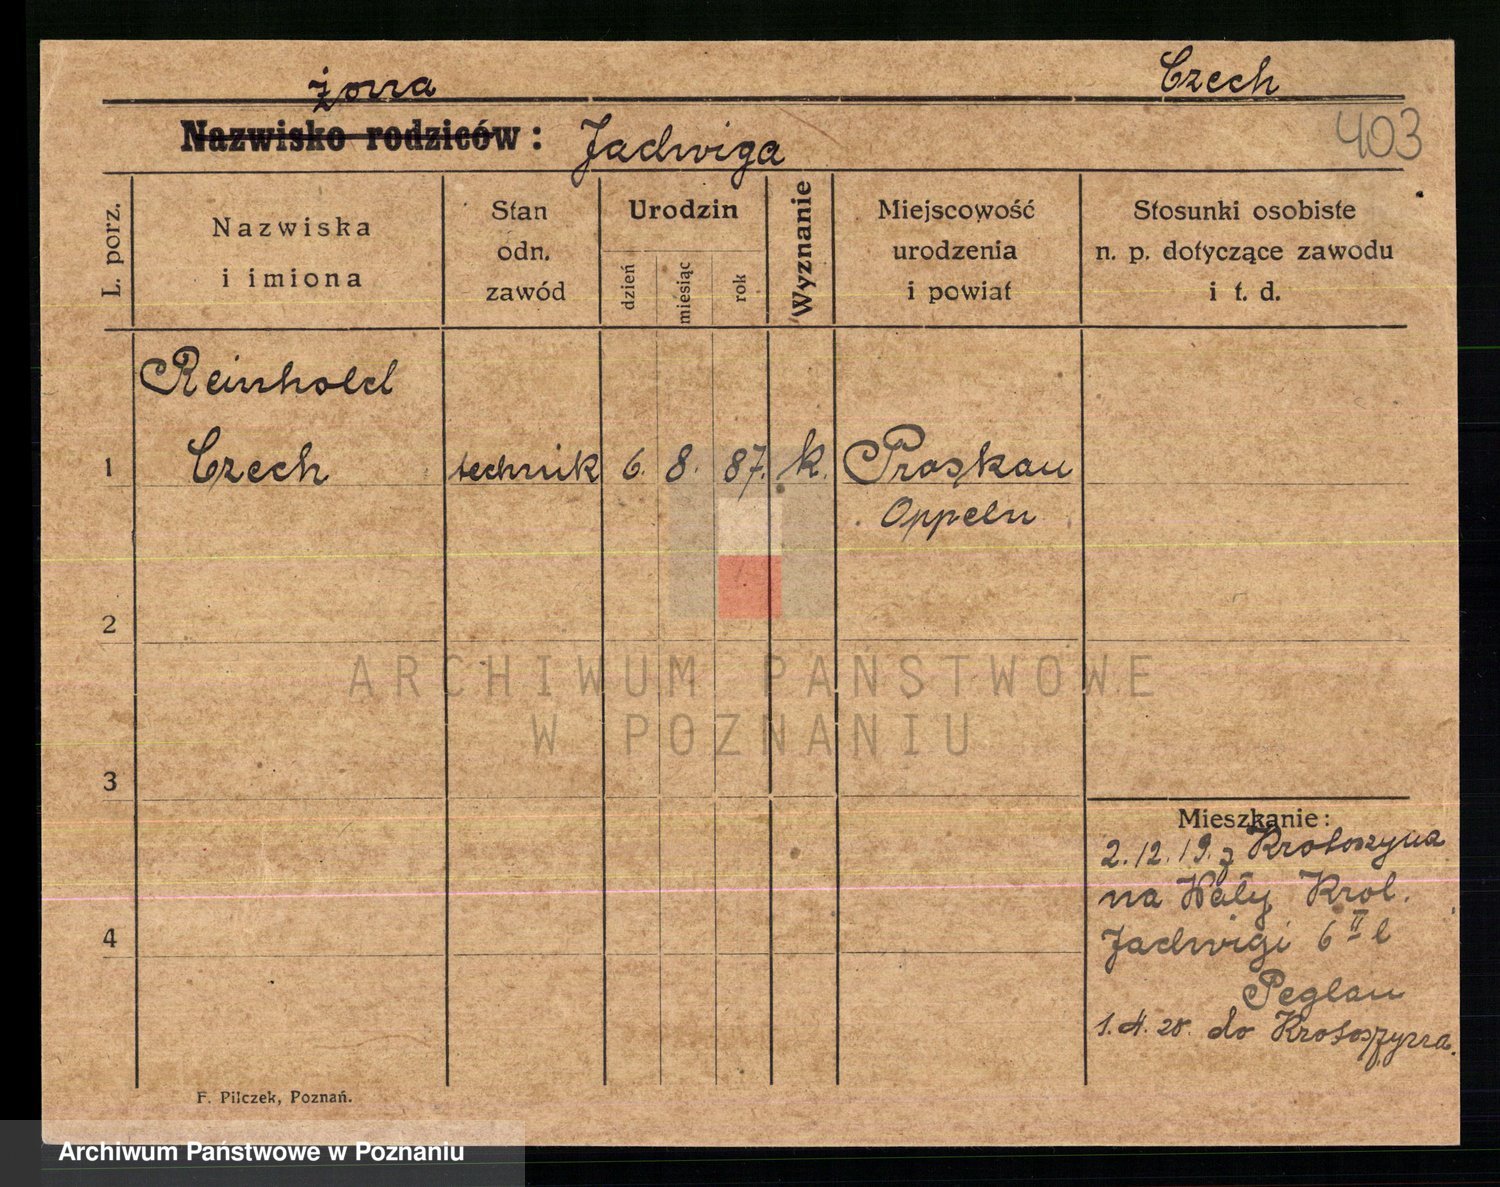 żona
Czech
Nazwisko rodziców: Jadwiga
403
L. porz.
Nazwiska
i imiona
Stan
odn.
zawód
Urodzin
dzień
miesiąc
rok
Wyznanie
Miejscowość
urodzenia
i powiat
Stosunki osobiste
n. p. dotyczące zawodu
i t. d.
Reinhold
1 Czech technik 6. 8. 87. k. Proskau
Oppeln
2
ARCHIWUM PAŃSTWOWE
W POZNANIU
3
Mieszkanie:
2.12.19. z Krotoszyna
na Wały Krol.
4
Jadwigi 6 II l
Peglau
1.4.20. do Krotoszyna.
F. Pilczek, Poznań.
Archiwum Państwowe w Poznaniu